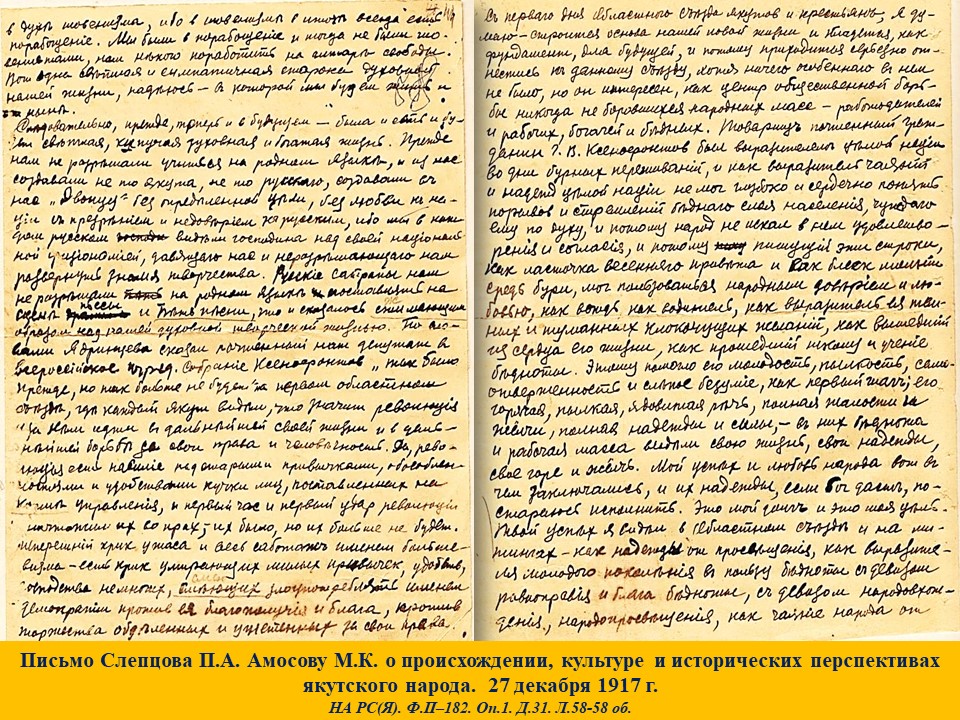 в духе шовенизма, ибо в шовенизме в итоге всегда есть
порабощение. Мы были в порабощении и тогда не были шо-
венистами, нам некого поработить на алтарь свободы.
Вот одна светлая и симпатичная сторона духовной
нашей жизни, надеюсь – в которой мы будем жить и
ныне.
Следовательно, прежде, теперь и в будущем – была и есть и бу-
дет светлая, кипучая духовная и богатая жизнь. Прежде
нам не разрешали учиться на родном языке, и из нас
создавали не то якута, не то русского, создавали с
нас без определенной цели, без любви к на-
ции с презрением и недоверием к русским, ибо мы в каж-
дом русском видели господина над своей националь-
ной физиономией, давящего нас и неразрешающего нам
развернуть знамя творчества. Русские сатрапы нам
не разрешали на родном языке поставить на
сцены пьесы и петь песни, что и сказалось
образом над нашей духовной творческой жизнью. Но сло-
вами Ядринцева сказал почтенный наш депутат в
всероссийское учред. собрание Ксенофонтов „так было
прежде, но так больше не будет" на первом областном
съезде, где каждый якут видел, что значит революция
и за чем идти в дальнейшей своей жизни и в даль-
нейшей борьбе за свои права и человечность. Да, рево-
люция есть над старыми привычками,
и удобствами кучки лиц, поставленных на
управления, и первый час и первый удар революции
уничтожил их во прах, – их было, но их больше не будет.
Теперешний крик ужаса и весь саботаж именем больше-
визма – есть крик умирающих милых привычек, удобств,
господства немногих, злоупотреблять именем
демократии против ея благополучия и блага, против
торжества обделенных и угнетенных за свои права.
Съ перваго дня Областного съезда якутов и крестьян, я ду-
маю – строится основа нашей новой жизни и кладется, как
фундамент, для будущей, и потому приходится серьезно от-
нестись к данному съезду, хотя ничего особенного в нем
не было, но он интересен, как центр общественной борь-
бы никогда не боровшихся народных масс – работодателей
и рабочих, богачей и бедных. Товарищ почтенный граж-
данин Г. В. Ксенофонтов был выразителем целой нации
во дни бурных переживаний, и как выразитель чаяний
и надежд целой нации не мог глубоко и сердечно понять
порывов и стремлений бедного слоя населения, чуждого
ему по духу, и потому народ не искал в нем удовлетво-
рения и согласия, и потому пишущий эти строки,
как ласточка весеннего привета и как блеск молнии
средь бури, мог пользоваться народным доверием и лю-
бовью, как вождь, как водитель, как выразитель их тем-
ных и туманных клокочущих желаний, как вышедший
из сердца его жизни, как прошедший школу и учение
бедноты. Этому помогло его молодость, пылкость, само-
отверженность и смелое безумие, как первый шаг; его
горячая, пылкая, ядовитая речь, полная жалости и
желчи, полная надежды и силы, – в них беднота
и рабочая масса видели свою жизнь, свои надежды,
свое горе и желчь. Мой успех и любовь народа вот в
чем заключались, и их надежды, если бог даст, по-
стараюсь исполнить. Это мой долг и это моя цель.
Твой успех я видел в Областном съезде и на ми-
тингах – как надежды от просвещения, как выразите-
ля молодого поколения в пользу бедноты с девизом
равноправия и блага бедноты, с девизом народовож-
дения, народопросвещения, как чаяние народа от
Письмо Слепцова П.А. Амосову М.К. о происхождении, культуре и исторических перспективах
якутского народа. 27 декабря 1917 г.
НА РС(Я). Ф.П–182. Оп.1. Д.31. Л.58-58 об.